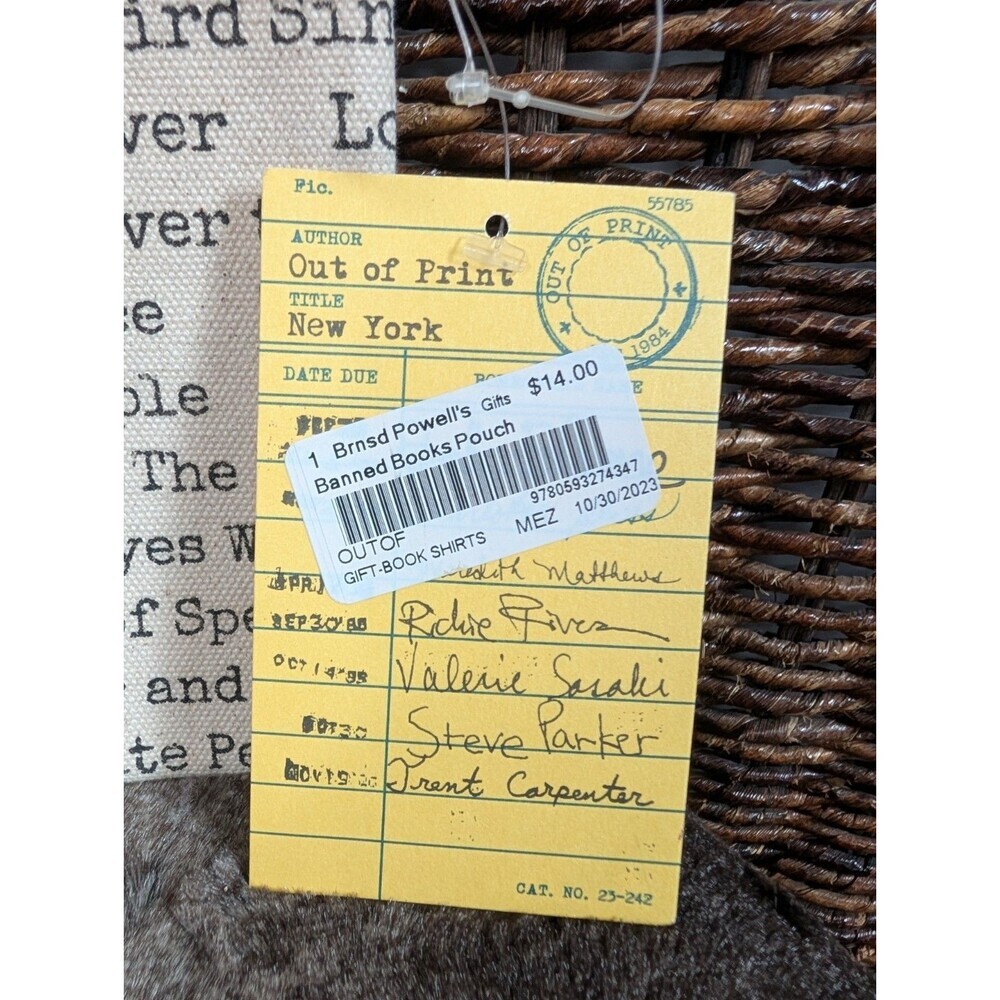 ird Sin
ver Lo
ver
ce
ble
The
yes W
f Spe
and
te Pe
Fic.
55785
AUTHOR
Out of Print
TITLE
New York
OUT OF PRINT
1984
DATE DUE
$14.00
1 Brnsd Powell's Gifts
Banned Books Pouch
9780593274347
OUTOF MEZ 10/30/2023
GIFT-BOOK SHIRTS
APR
Matthews
SEP 30
Valerie Sasaki
OCT 14
Steve Parker
OCT 30
Trent Carpenter
NOV 19
CAT. NO. 23-242